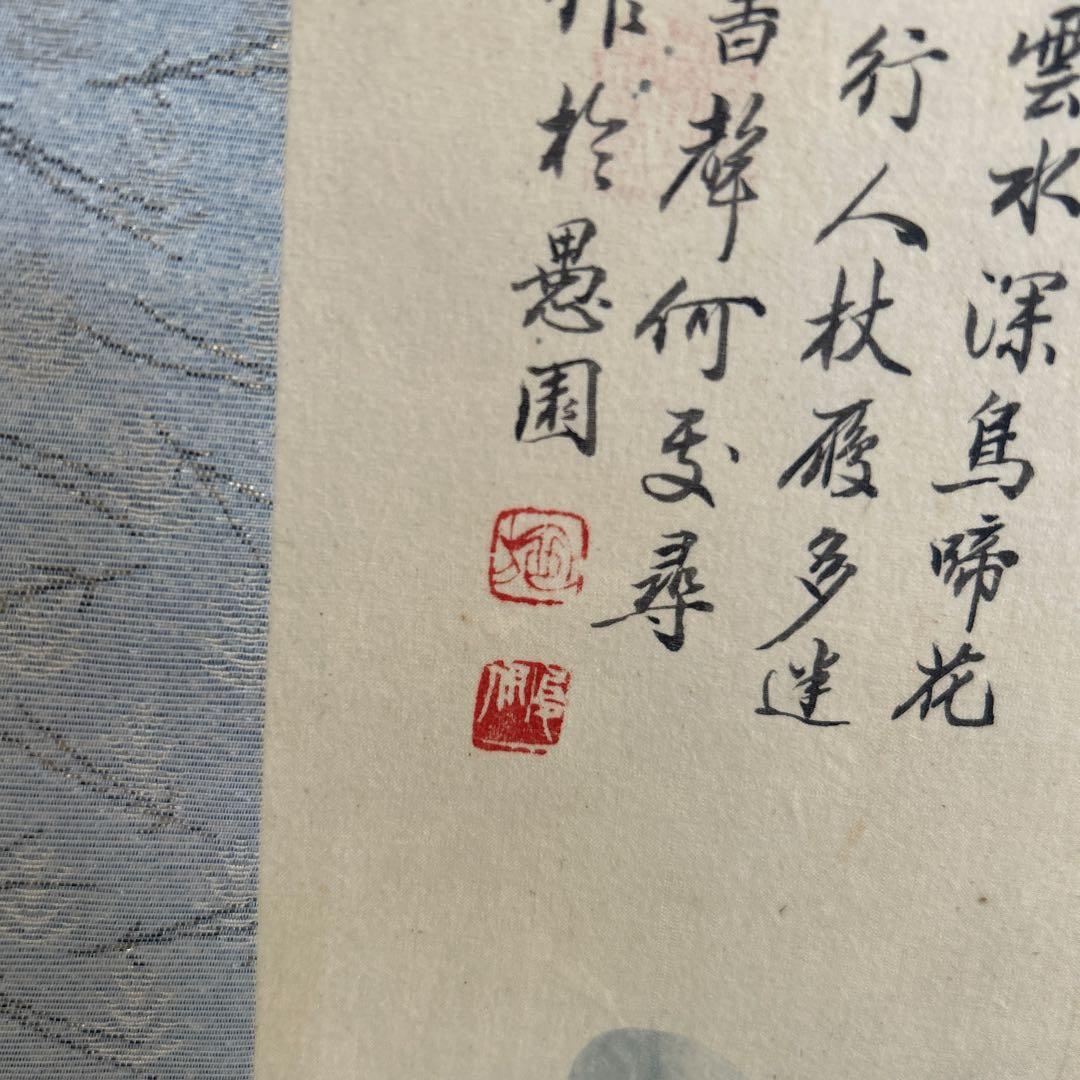 雲水深鳥啼花
行人杖履多迷
聲何處尋
於愚園